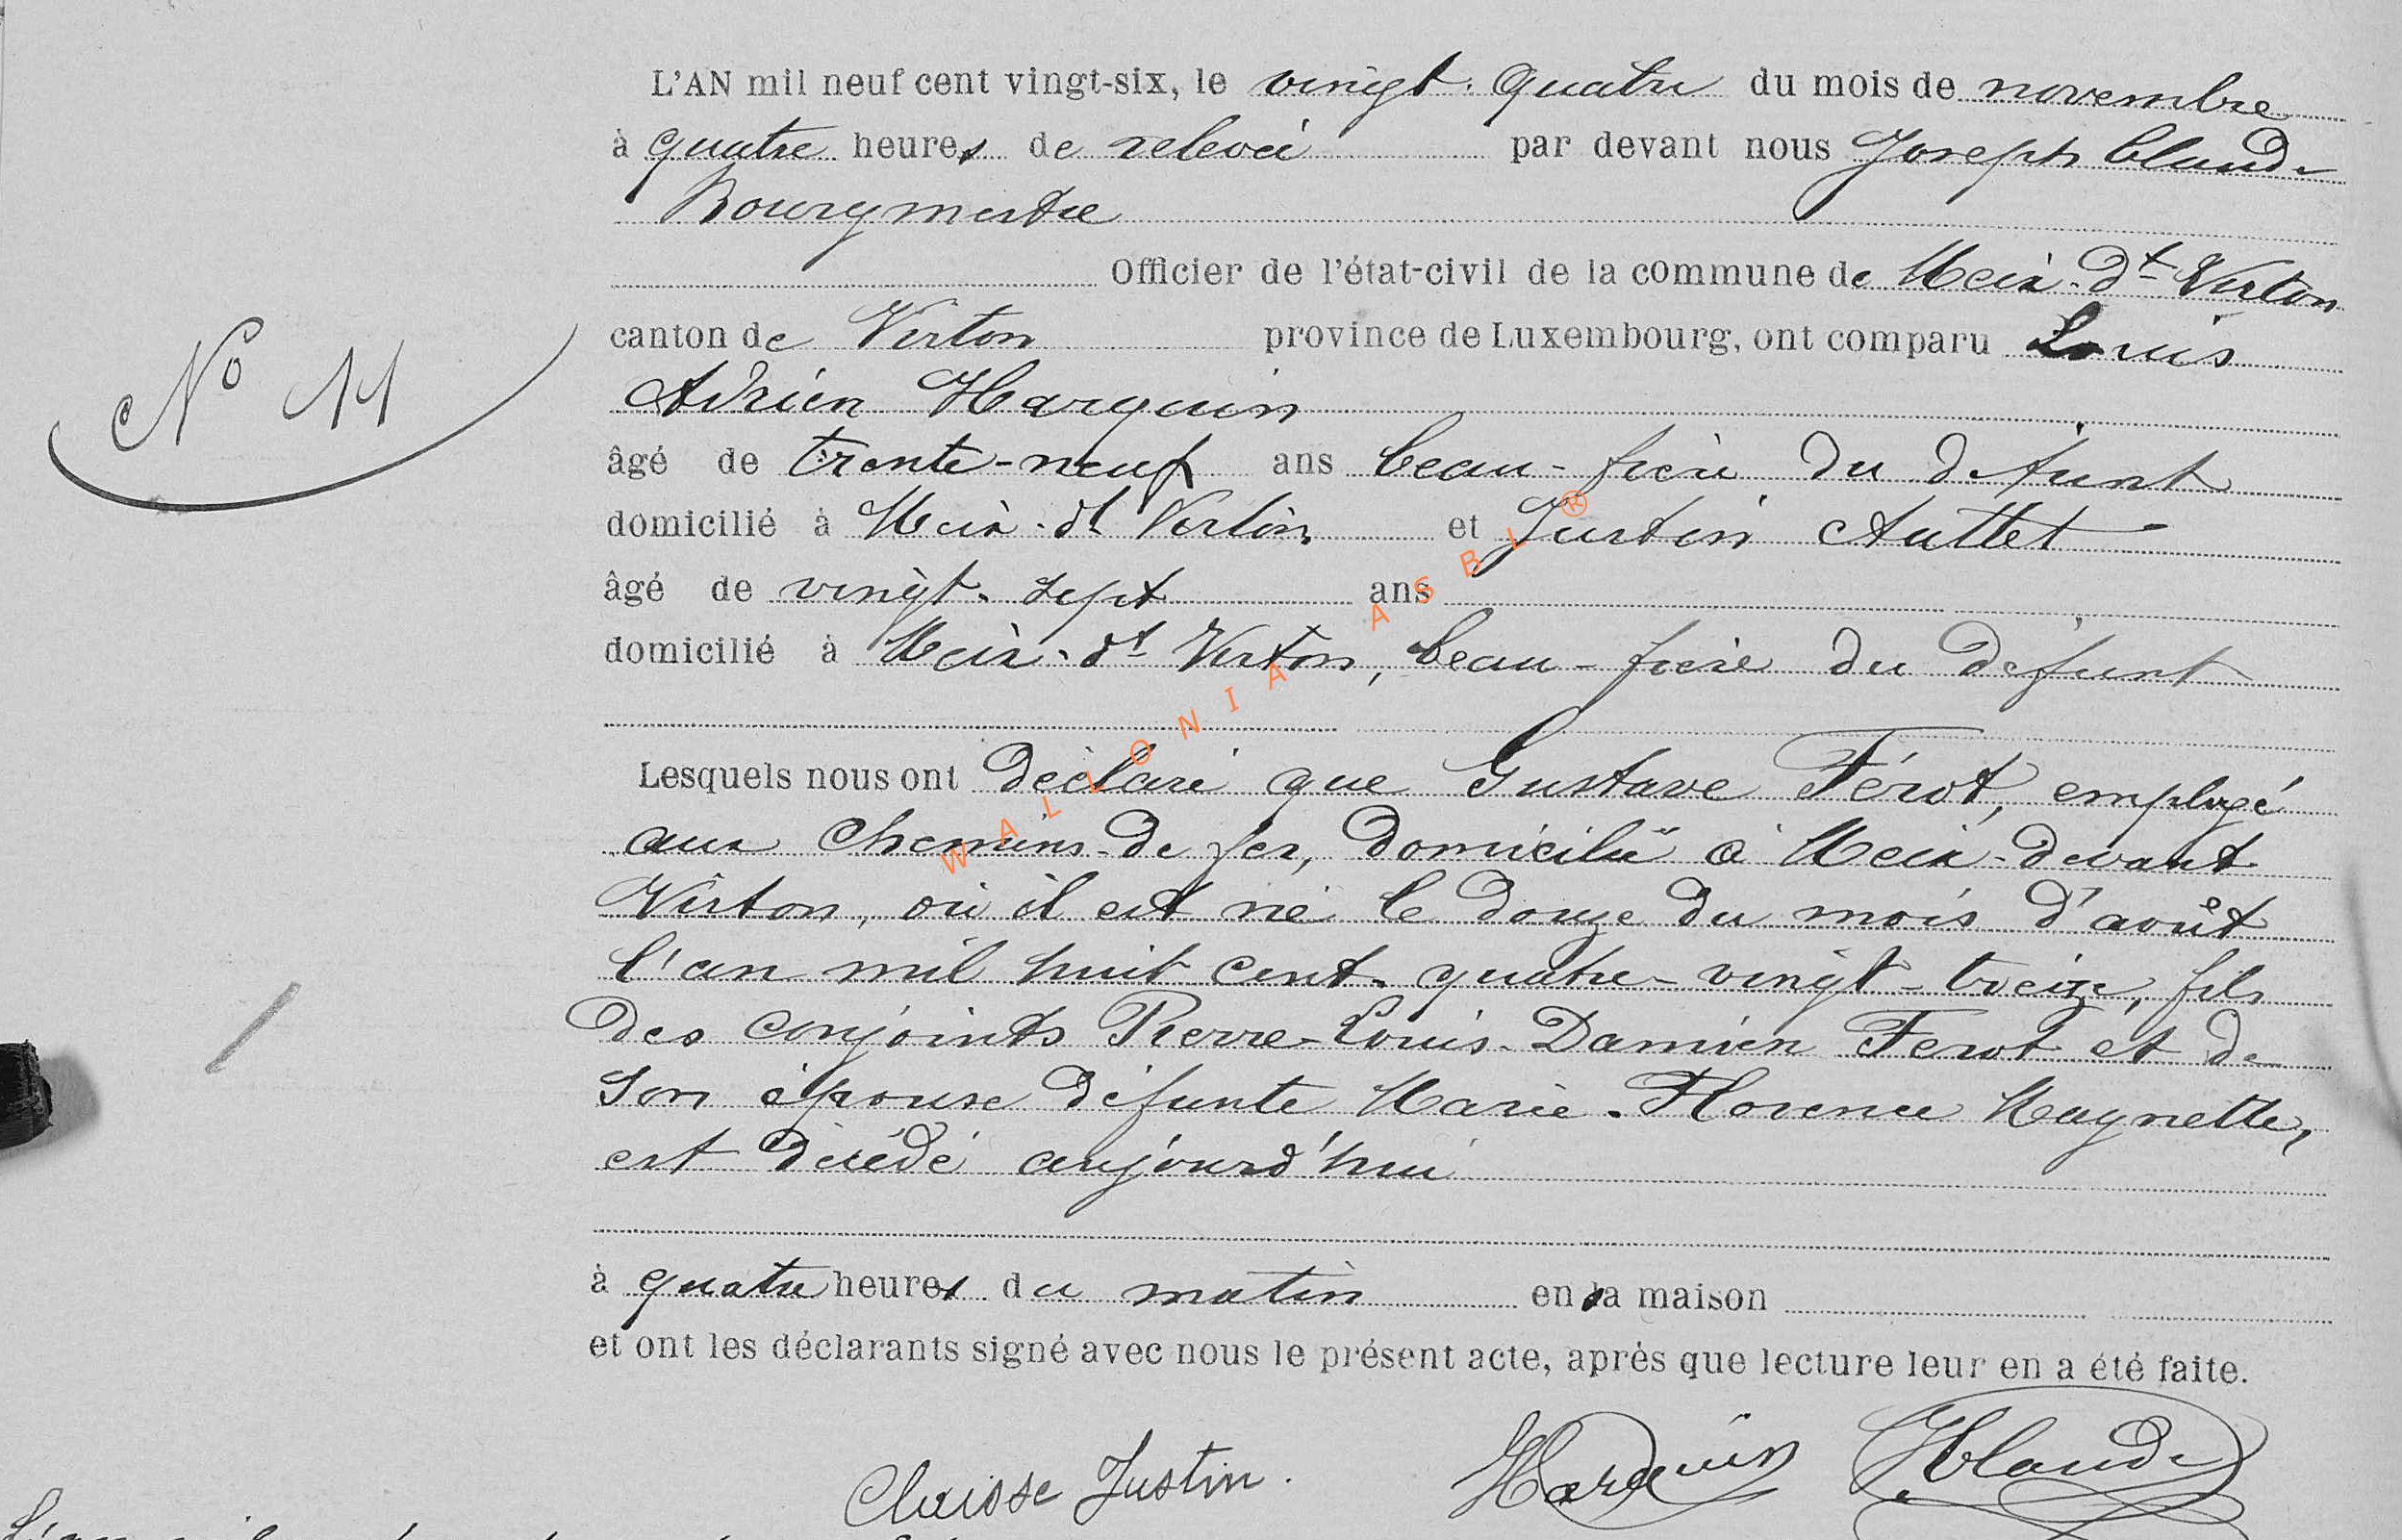 L'AN mil neuf cent vingt-six, le vingt-quatre du mois de novembre
à quatre heures de relevée par devant nous Joseph Claude
Bourgmestre
Officier de l'état-civil de la commune de Meix-dt Virton
canton de Virton province de Luxembourg, ont comparu Louis
Adrien Harquin
N° 11
âgé de trente-neuf ans beau-frère du défunt
domicilié à Meix-dt Virton et Justin
âgé de vingt-sept ans
domicilié à Meix-dt Virton, beau-frère du défunt
Lesquels nous ont déclaré que Gustave Férot, employé
aux chemins-de fer, domicilié à Meix-devant
Virton, où il est né le douze du mois d'août
l'an mil huit cent-quatre-vingt-treize, fils
des conjoints Pierre-Louis-Damien Ferot et de
son épouse défunte Marie-Florence Magnette,
est décédé aujourd'hui
à quatre heures du matin en sa maison
et ont les déclarants signé avec nous le présent acte, après que lecture leur en a été faite.
Justin. Harquin JClaude
WALLONIA ASBL ®